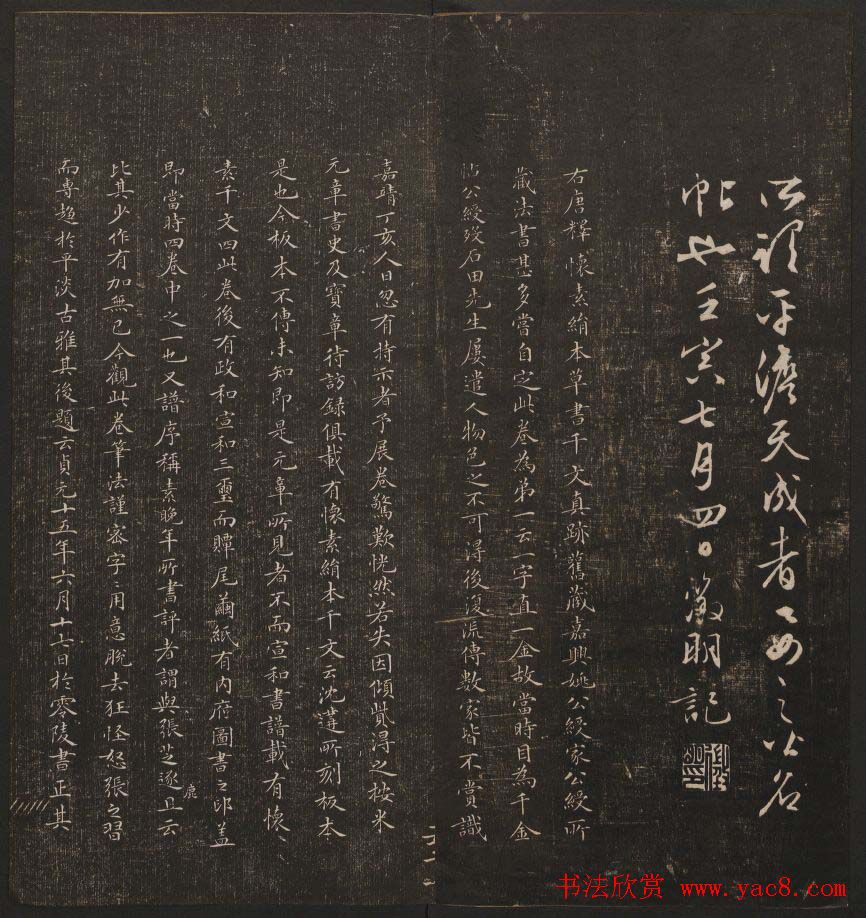 所謂平淡天成者
帖也壬寅七月四日徵明記
右唐釋懷素絹本草書千文真跡舊藏嘉興姚公綬家公綬所
藏法書甚多嘗自定此卷為第一云一字直一金故當時目為千金
帖公綬歿石田先生屢遣人物色之不可得後復流傳數家皆不賞識
嘉靖丁亥人日忽有持示者予展卷驚歎恍然若失因傾貲得之按米
元章書史及寶章待訪錄俱載有懷素絹本千文云沈遘所刻板本
是也今板本不傳未知即是元章所見者不而宣和書譜載有懷
素千文四此卷後有政和宣和三璽而贉尾繭紙有內府圖書之印蓋
即當時四卷中之一也又譜序稱素晚年所書評者謂與張芝逐鹿且云
比其少作有加無已今觀此卷筆法謹密字字用意脫去狂怪怒張之習
而專趨於平淡古雅其後題云貞元十五年六月十七日於零陵書正其
书法欣赏 www.yac8.com